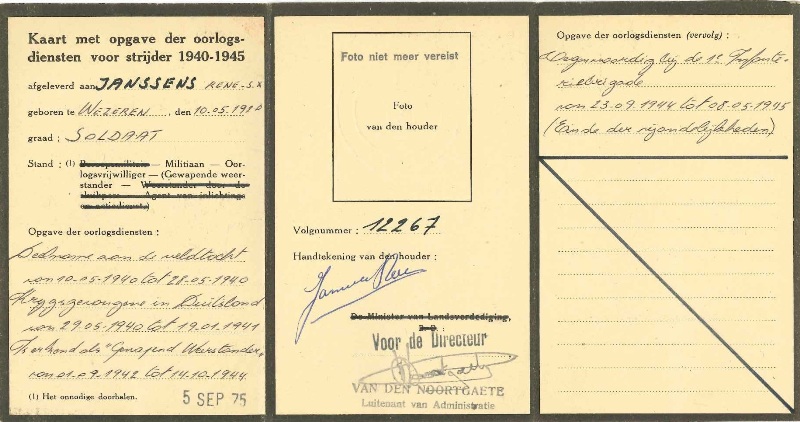 Kaart met opgave der oorlogs-
diensten voor strijder 1940-1945
afgeleverd aan JANSSENS RENE-S.X
geboren te WEZEREN, den 10.05.19
graad : SOLDAAT
Stand : (1) Beroepsmilitair — Militiaan — Oor-
logsvrijwilliger — (Gewapende weer-
stander — Weerstander door de
sluikpers — Agent van inlichtings-
en actiedienst.)
Opgave der oorlogsdiensten :
Deelname aan de veldtocht
van 10-05-1940 tot 28-05-1940
Krijgsgevangene in Duitsland
van 29.05-1940 tot 19.01-1941
Erkend als "Gewapend Weerstander"
van 01.09-1942 tot 14.10-1944
(1) Het onnodige doorhalen.
5 SEP 75
Foto niet meer vereist
Foto
van den houder
Volgnummer : 12267
Handtekening van den houder :
De Minister van Landsverdediging,
Voor de Directeur
VAN DEN NOORTGAETE
Luitenant van Administratie
Opgave der oorlogsdiensten (vervolg) :
Tegenwoordig bij de 1e Infante-
riebrigade
van 23.09-1944 tot 08.05-1945
(Einde der vijandelijkheden)